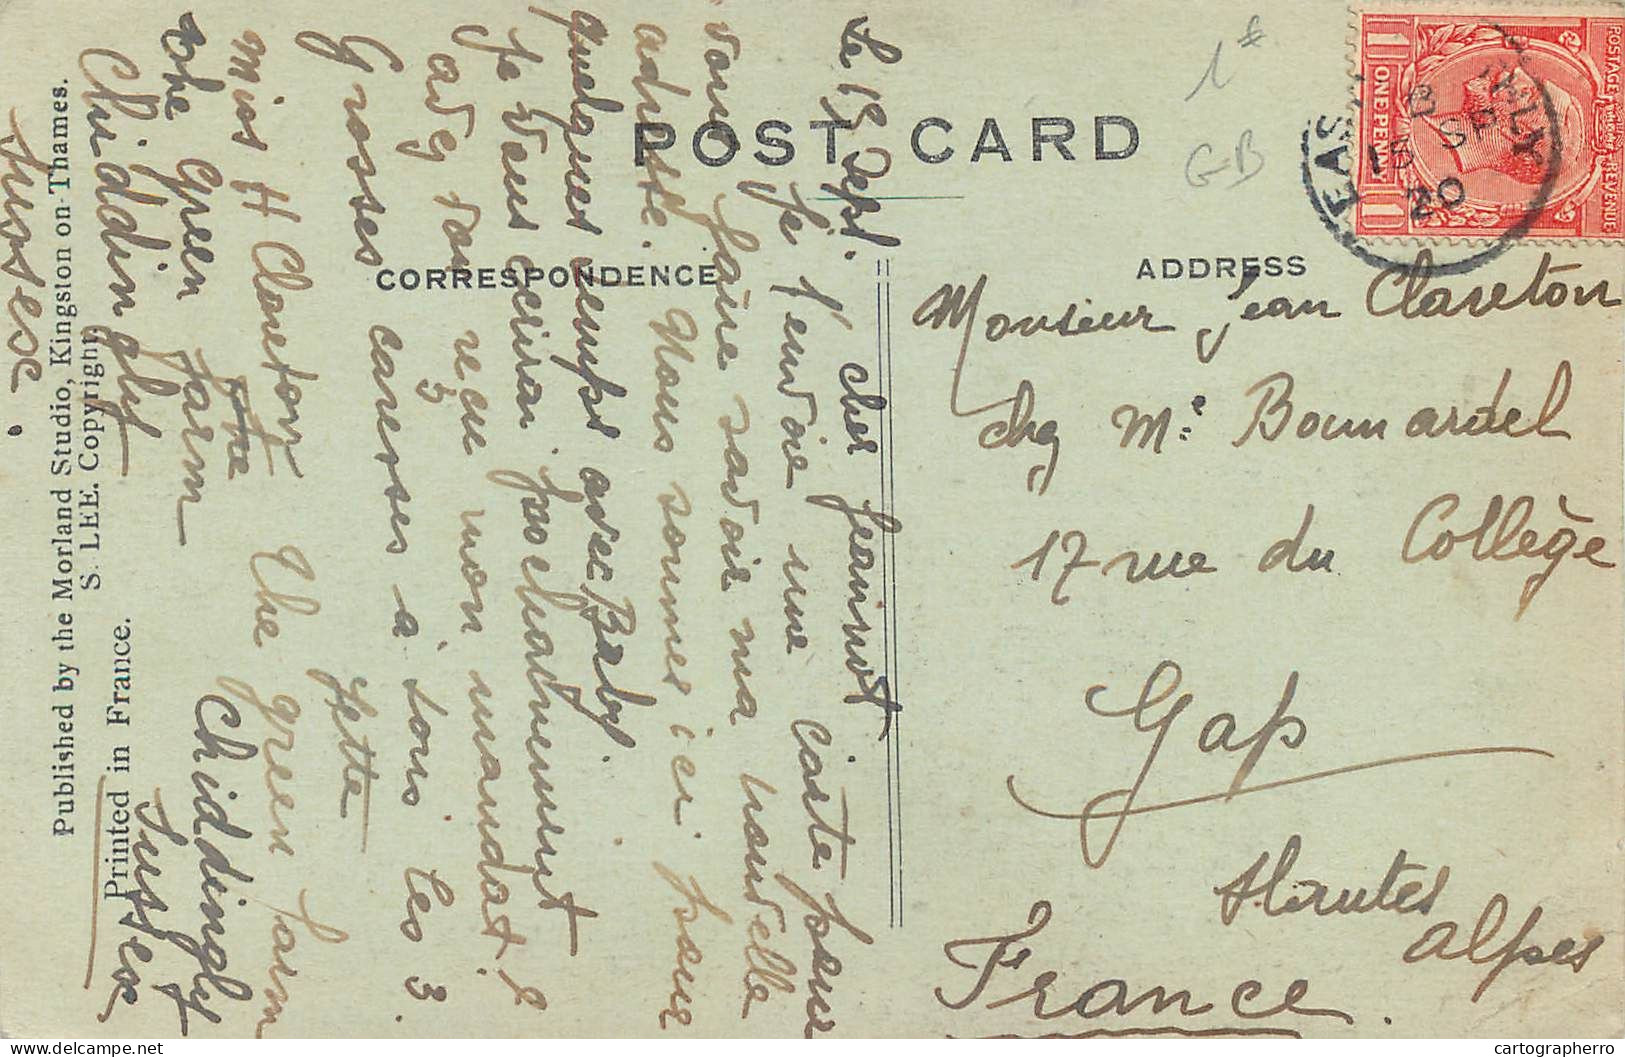 POST CARD
CORRESPONDENCE
ADDRESS
1€
GB
POSTAGE REVENUE
ONE PENNY
EAST
LY
SP
20
Monsieur Jean Clareton
chez Mr Bonnardel
17 rue du Collège
Gap
Hautes
Alpes
France.
Le 18 Sept. cher Jeannot
je t'envoie une carte pour
vous faire savoir ma nouvelle
adresse. Nous sommes ici pour
quelques temps avec Baby.
Je vous écrirai prochainement
avez vous reçu mon mandat?
Grosses caresses à tous les 3
Yette
Miss H Clareton The green farm
Chiddingly
Sussex
The Green farm
Chiddingly
Sussex.
Published by the Morland Studio, Kingston-on-Thames.
S. LEE. Copyright.
Printed in France.
cartographerro